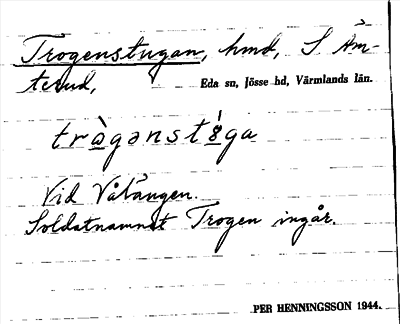 Trogenstugan, hmd, S Åm-
terud, Eda sn, Jösse hd, Värmlands län.
trågənst8ga
Vid Vålången.
Soldatnamnet Trogen ingår.
PER HENNINGSSON 1944.